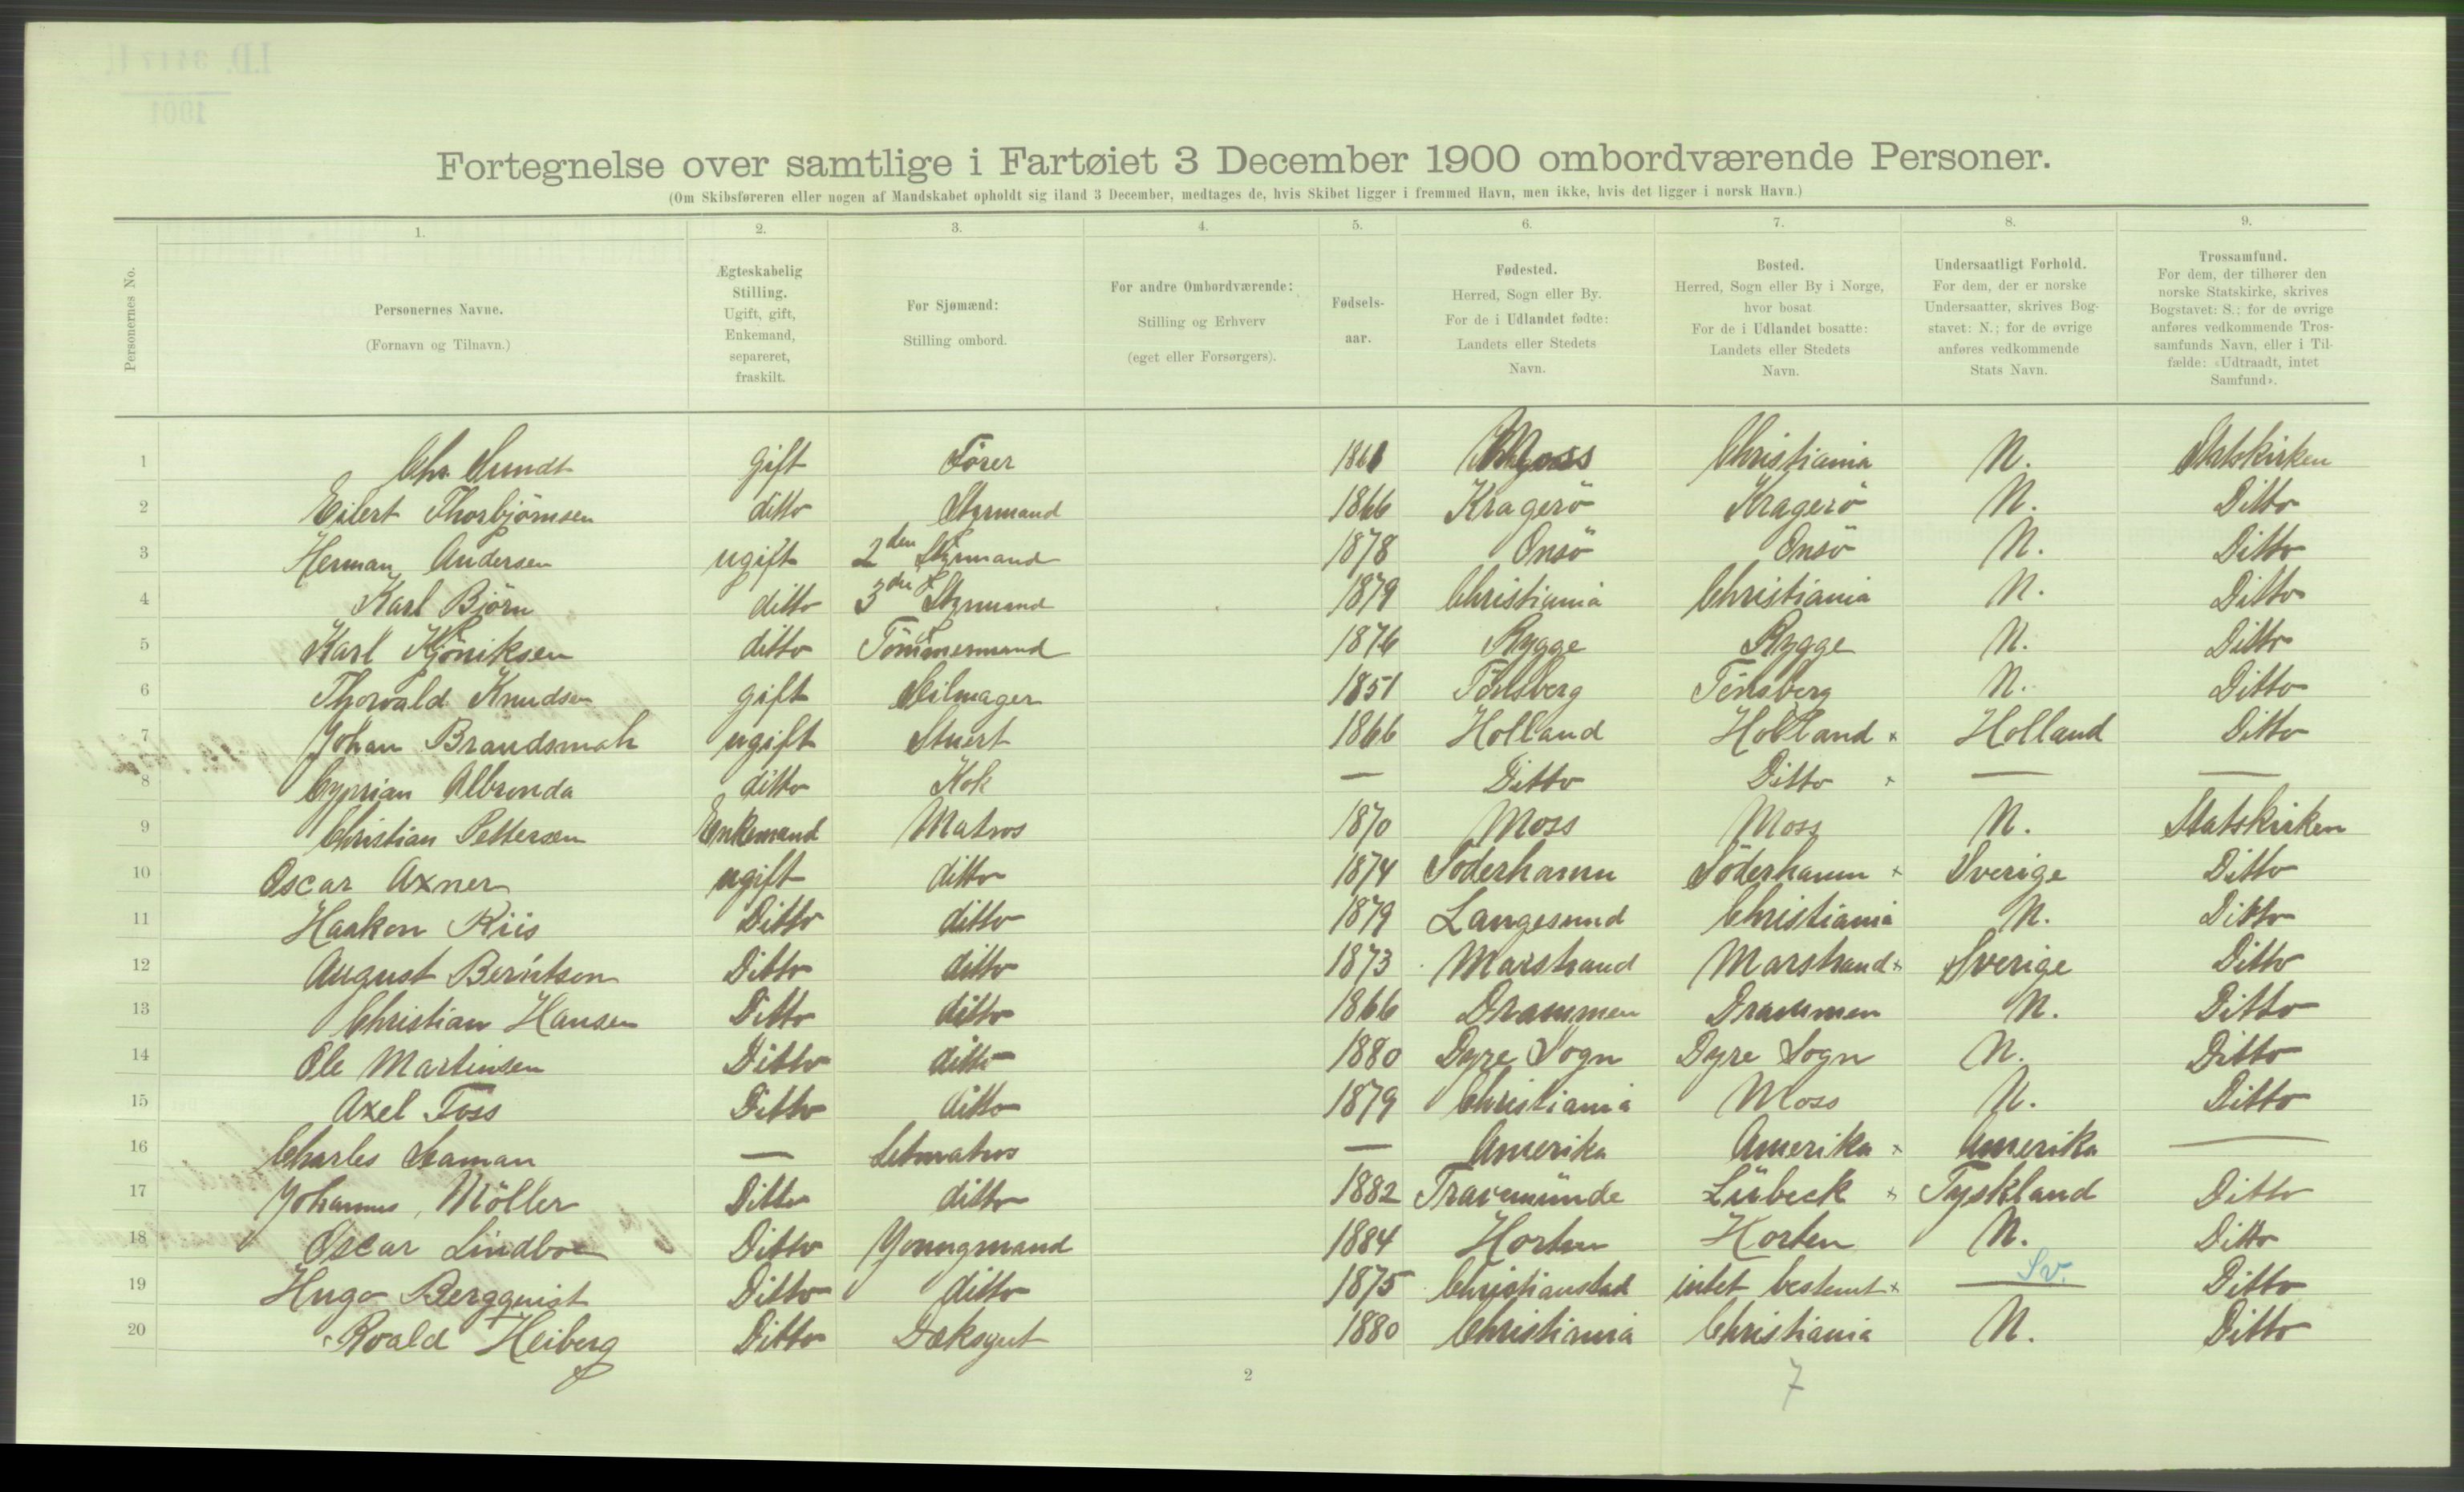 Fortegnelse over samtlige i Fartøiet 3 December 1900 ombordværende Personer.
(Om Skibsføreren eller nogen af Mandskabet opholdt sig iland 3 December, medtages de, hvis Skibet ligger i fremmed Havn, men ikke, hvis det ligger i norsk Havn.)
1. 2. 3. 4. 5. 6. 7. 8. 9.
Personernes No.
Personernes Navne.
(Fornavn og Tilnavn.)
Ægteskabelig
Stilling.
Ugift, gift,
Enkemand,
separeret,
fraskilt.
For Sjømænd:
Stilling ombord.
For andre Ombordværende:
Stilling og Erhverv
(eget eller Forsørgers).
Fødsels-
aar.
Fødested.
Herred, Sogn eller By.
For de i Udlandet fødte:
Landets eller Stedets
Navn.
Bosted.
Herred, Sogn eller By i Norge,
hvor bosat
For de i Udlandet bosatte:
Landets eller Stedets
Navn.
Undersaatligt Forhold.
For dem, der er norske
Undersaatter, skrives Bog-
stavet: N.; for de øvrige
anføres vedkommende
Stats Navn.
Trossamfund.
For dem, der tilhører den
norske Statskirke, skrives
Bogstavet: S.; for de øvrige
anføres vedkommende Tros-
samfunds Navn, eller i Til-
fælde: «Udtraadt, intet
Samfund».
1 Chr. Sundt gift Förer 1861 Moss Christiania N. Statskirken
2 Eilert Thorbjörnsen ditto Styrmand 1866 Kragerö Kragerö N. Ditto
3 Herman Andersen ugift 2den Styrmand 1878 Onsö Onsö N. Ditto
4 Karl Björn ditto 3die Styrmand 1879 Christiania Christiania N. Ditto
5 Karl Kjöniksen ditto Tömmermand 1876 Rygge Rygge N. Ditto
6 Thorvald Knudsen gift Seilmager 1851 Tönsberg Tönsberg N. Ditto
7 Johan Brandsmah ugift Stuert 1866 Holland Holland × Holland Ditto
8 Cyprian Albronda ditto Kok — Ditto Ditto × — —
9 Christian Pettersen Enkemand Matros 1870 Moss Moss N. Statskirken
10 Oscar Axner ugift ditto 1874 Söderhamn Söderhamn × Sverige Ditto
11 Haakon Riis Ditto ditto 1879 Langesund Christiania N. Ditto
12 August Berntson Ditto ditto 1873 Marstrand Marstrand × Sverige Ditto
13 Christian Hansen Ditto ditto 1866 Drammen Drammen N. Ditto
14 Ole Martinsen Ditto ditto 1880 Dyre Sogn Dyre Sogn N. Ditto
15 Axel Foss Ditto ditto 1879 Christiania Moss N. Ditto
16 Charles Seaman — Letmatros — Amerika Amerika × Amerika —
17 Johannes Möller Ditto ditto 1882 Travemünde Lübeck × Tyskland Ditto
18 Oscar Lindboe Ditto Youngmand 1884 Horten Horten N. Ditto
19 Hugo Bergquist Ditto ditto 1875 Christianstad intet bestemt × — Sv. Ditto
20 Roald Heiberg Ditto Dæksgut 1880 Christiania Christiania N. Ditto
2
7